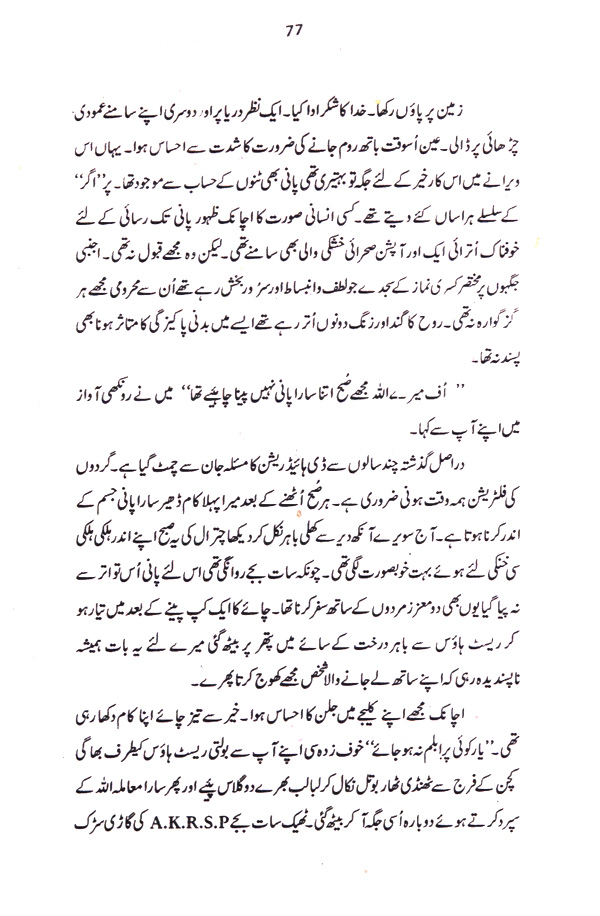 77
زمین پر پاؤں رکھا۔ خدا کا شکر ادا کیا۔ ایک نظر دریا پر اور دوسری اپنے سامنے عمودی
چڑھائی پر ڈالی۔ عین اُسوقت باتھ روم جانے کی ضرورت کا شدت سے احساس ہوا۔ یہاں اس
ویرانے میں اس کارِ خیر کے لئے جگہ تو بہتیری تھی پانی بھی ٹنوں کے حساب سے موجود تھا۔ پر ’’اگر‘‘
کے سلسلے ہراساں کئے دیتے تھے۔ کسی انسانی صورت کا اچانک ظہور پانی تک رسائی کے لئے
خوفناک اُترائی ایک اور آپشن صحرائی خشکی والی بھی سامنے تھی۔ لیکن وہ مجھے قبول نہ تھی۔ اجنبی
جگہوں پر مختصر کسری نماز کے سجدے جو لطف و انبساط اور سرُور بخش رہے تھے اُن سے محرومی مجھے ہر
گز گوارہ نہ تھی۔ روح کا گند اور زنگ دونوں اُتر رہے تھے ایسے میں بدنی پاکیزگی کا متاثر ہونا بھی
پسند نہ تھا۔
’’ اُف میرے اللہ مجھے صُبح اتنا سارا پانی نہیں پینا چاہئیے تھا‘‘ میں نے رونکھی آواز
میں اپنے آپ سے کہا۔
دراصل گذشتہ چند سالوں سے ڈی ہائیڈریشن کا مسئلہ جان سے چمٹ گیا ہے۔ گردوں
کی فلٹریشن ہمہ وقت ہونی ضروری ہے۔ ہر صُبح اُٹھنے کے بعد میرا پہلا کام ڈھیر سارا پانی جسم کے
اندر کرنا ہوتا ہے۔ آج سویرے آنکھ دیر سے کھلی باہر نکل کر دیکھا چترال کی یہ صبح اپنے اندر ہلکی ہلکی
سی خنکی لئے ہوئے بہت خوبصورت لگی تھی۔ چونکہ سات بجے روانگی تھی اس لئے پانی اُس تواتر سے
نہ پیا گیا یوں بھی دو معزز مردوں کے ساتھ سفر کرنا تھا۔ چائے کا ایک کپ پینے کے بعد میں تیار ہو
کر ریسٹ ہاؤس سے باہر درخت کے سائے میں پتھر پر بیٹھ گئی میرے لئے یہ بات ہمیشہ
ناپسندیدہ رہی کہ اپنے ساتھ لے جانے والا شخص مجھے کھوج کرتا پھرے۔
اچانک مجھے اپنے کلیجے میں جلن کا احساس ہوا۔ خیر سے تیز چائے اپنا کام دکھا رہی
تھی۔ ’’یار کوئی پرابلم نہ ہو جائے‘‘ خوف زدہ سی اپنے آپ سے بولتی ریسٹ ہاؤس کیطرف بھاگی
کچن کے فرج سے ٹھنڈی ٹھار بوتل نکال کر لبالب بھرے دو گلاس پئیے اور پھر سارا معاملہ اللہ کے
سپرد کرتے ہوئے دوبارہ اُسی جگہ آ کر بیٹھ گئی۔ ٹھیک سات بجے A.K.R.S.P کی گاڑی سڑک